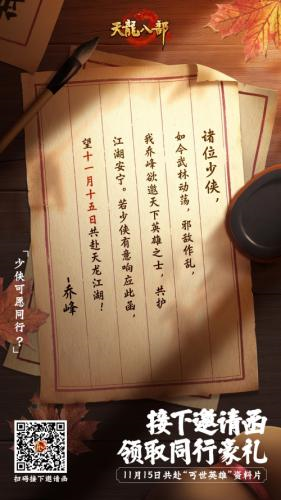 天龍八部
诸位少侠，
如今武林动荡，邪敌作乱，
我乔峰欲邀天下英雄之士，共护
江湖安宁。若少侠有意响应此函，
望十一月十五日共赴天龙江湖！
-乔峰
「少侠可愿同行？」
接下邀请函
领取同行豪礼
11月15日共赴“可世英雄”资料片
扫码接下邀请函